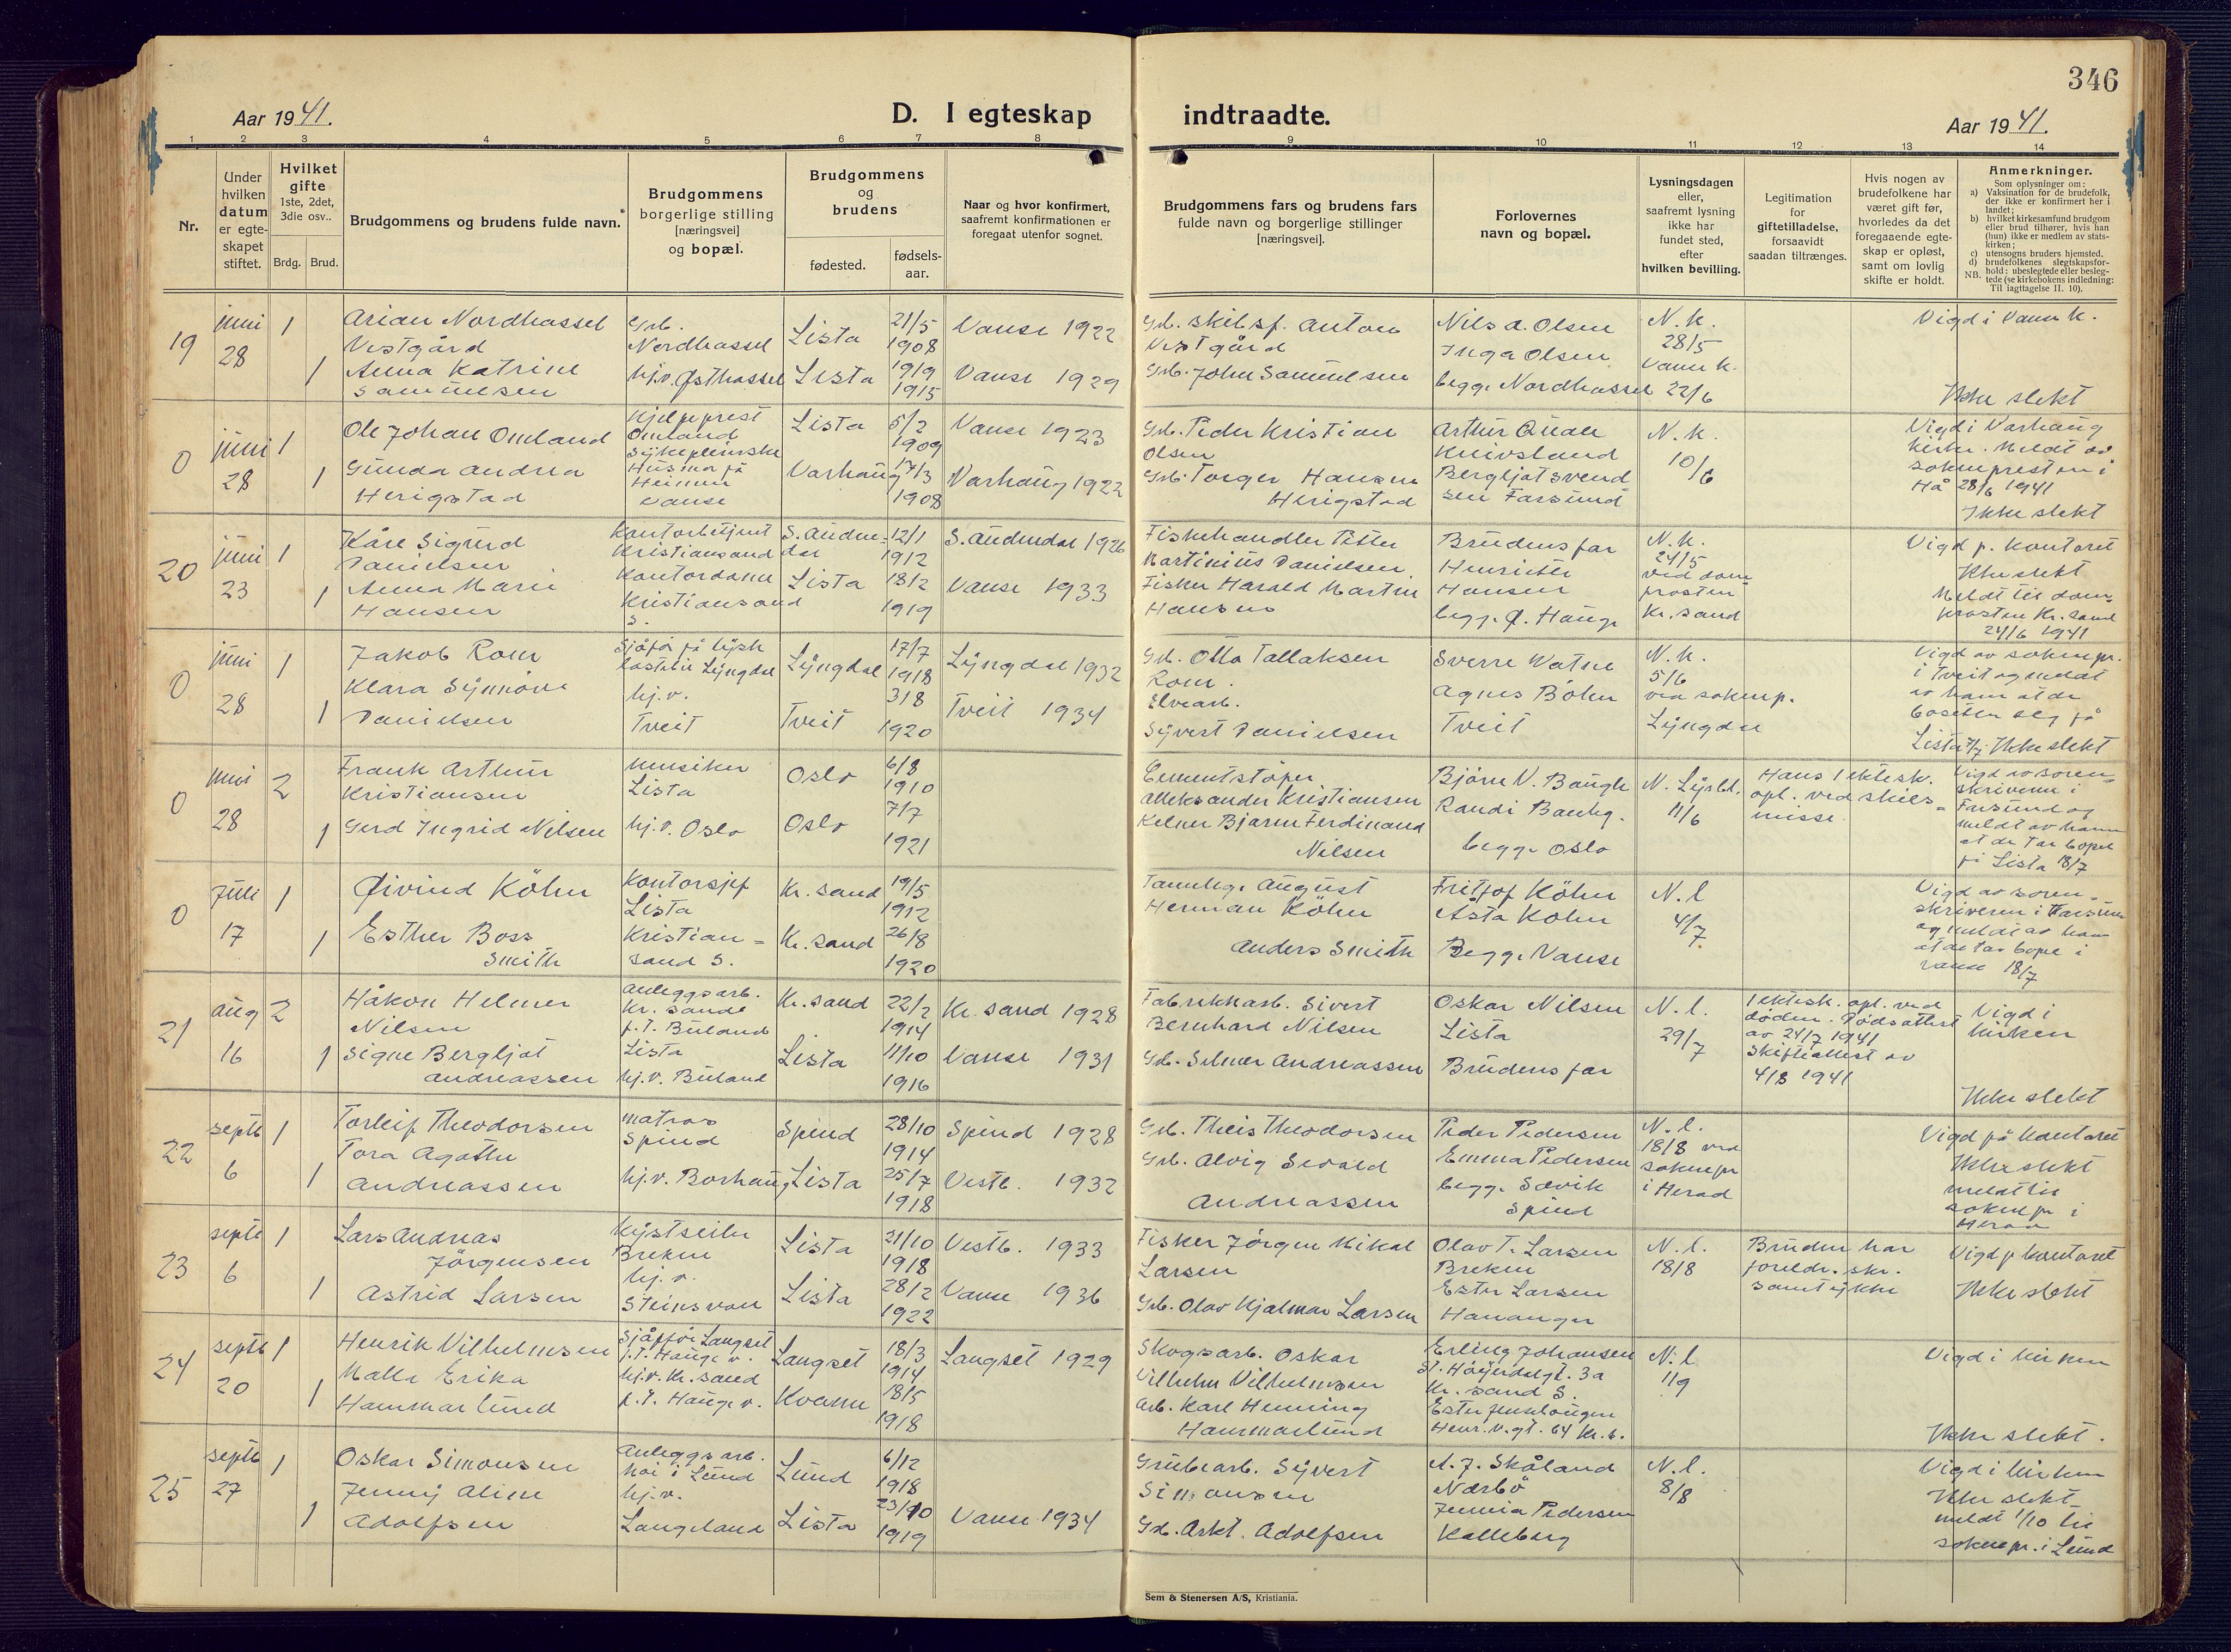 346
Aar 1941.
D. I egteskap
indtraadte.
Aar 1941.
1 2 3 4 5 6 7 8 9 10 11 12 13 14
Nr.
Under hvilken datum er egte-skapet stiftet.
Hvilket gifte 1ste, 2det, 3die osv..
Brdg. Brud.
Brudgommens og brudens fulde navn.
Brudgommens borgerlige stilling [næringsvei] og bopæl.
Brudgommens og brudens
fødested.
fødsels-aar.
Naar og hvor konfirmert, saafremt konfirmationen er foregaat utenfor sognet.
Brudgommens fars og brudens fars fulde navn og borgerlige stillinger [næringsvei].
Forlovernes navn og bopæl.
Lysningsdagen eller, saafremt lysning ikke har fundet sted, efter hvilken bevilling.
Legitimation for giftetilladelse, forsaavidt saadan tiltrænges.
Hvis nogen av brudefolkene har været gift før, hvorledes da det foregaaende egte-skap er opløst, samt om lovlig skifte er holdt.
Anmerkninger.
Som oplysninger om:
a) Vaksination for de brudefolk, der ikke er konfirmert her i landet;
b) hvilket kirkesamfund brudgom eller brud tilhører, hvis han (hun) ikke er medlem av stats-kirken;
c) utensogns bruders hjemsted.
d) brudefolkenes slegtskapsfor-hold: ubeslegtede eller besleg-tede (se kirkebokens indledning: Til iagttagelse II. 10).
NB.
19 juni 28 1 1
Arian Nordhassel Vestgård
Anna Katrine Samuelsen
Grb. Nordhassel
hj.v. Østhassel
Lista 21/5 1908 Vanse 1922
Lista 19/9 1915 Vanse 1929
Grb. skibsf. Anton Vestgård
Grb. John Samuelsen
Nils A. Olsen
Inga Olsen
begge Nordhassel
N.k. 28/5 Vanse k. 22/6
Vigd i Vanse k.
Ikke slekt
0 juni 28 1 1
Ole Johan Omland
Gunda Andrea Herigstad
Hjelpeprest Omland
Sykepleierske Husmo på Heimen Vanse
Lista 5/2 1909 Vanse 1923
Varhaug 17/3 1908 Varhaug 1922
Grb. Peder Kristian Olsen
Grb. Torger Hansen Herigstad
Arthur Quale Knivsland
Bergljot Svendsen Farsund
N.k. 10/6
Vigd i Varhaug kirke. Meldt av sokneprest en i Hå 28/6 1941
Ikke slekt
20 juni 23 1 1
Kåre Sigurd Danielsen
Anna Marie Hansen
Kontorbetjent Kristiansand
Kontordame Kristiansand S.
S. Audnedal 12/1 1912 S. Audnedal 1926
Lista 18/2 1919 Vanse 1933
Fiskehandler Petter Martinius Danielsen
Fisker Harald Martin Hansen
Brudens far
Henriette Hansen
begge Ø. Hauge
N.k. 24/5 ved domprosten Kr. sand
Vigd p. kontoret
Ikke slekt
Meldt til domprosten Kr. sand 24/6 1941
0 juni 28 1 1
Jakob Rom
Klara Synnøve Danielsen
Sjåfør på tysk lastebil Lyngdal
hj.v. Tveit
Lyngdal 17/7 1918 Lyngdal 1932
Tveit 3/8 1920 Tveit 1934
Grb. Otto Tallaksen Rom.
Elvearb. Syvert Danielsen
Sverre Watne
Agnes Bøhn
Tveit
N.k. 5/6 ved soknep. Lyngdal
Vigd av soknepr. i Tveit og meldt av ham at de bosetter seg på Lista 7/7 Ikke slekt
0 juni 28 2 1
Frank Arthur Kristiansen
Gerd Ingrid Nilsen
musiker Lista
hj.v. Oslo
Oslo 6/8 1910
Oslo 7/7 1921
Cementstøper Alleksander Kristiansen
Kelner Bjarne Ferdinand Nilsen
Bjørn V. Baugh
Randi Bauhg.
begge Oslo
N. Lysbl. 11/6
Hans 1 ektesk. opl. ved skilsmisse.
Vigd av sorenskriveren i Farsund og meldt av ham at de tar bopel på Lista 18/7
0 Juli 17 1 1
Øivind Köhn
Esther Boss Smith
Kontorsjef Lista
Kristiansand S.
Kr. sand 19/5 1912
Kr. sand 26/8 1920
Tannlege August Herman Köhn
Anders Smith
Fritjof Köhn
Åsta Köhn
Begge Vanse
N.l 4/7
Vigd av sorenskriveren i Farsund og meldt av ham at de tar bopel i Vanse 18/7
21 aug 16 2 1
Håkon Helmer Nilsen
Signe Bergljot Andreassen
Anleggsarb. Kr. sand p.t. Buland Lista
hj.v. Buland
Kr. sand 22/2 1914 Kr. sand 1928
Lista 11/10 1916 Vanse 1931
Fabrikkarb. Sivert Bernhard Nilsen
Grb. Selmer Andreassen
Oskar Nilsen Lista
Brudens far
N.l. 29/7
1 ektesk. opl. ved døden. Dødsattest av 24/7 1941
Skifteattest av 4/8 1941
Vigd i kirken
Ikke slekt
22 septb 6 1 1
Torleif Theodorsen
Tora Agathe Andreassen
Matros Spind
hj.v. Borhaug
Spind 28/10 1914 Spind 1928
Lista 25/7 1918 Vestb. 1932
Grb. Theis Theodorsen
Grb. Alvig Sevald Andreassen
Peder Pedersen
Emma Pedersen
begge Sævik Spind
N.l. 18/8 ved soknepr i Herad
Vigd på kontoret
Ikke slekt
meldt til soknepr i Herad
23 septb 6 1 1
Lars Andreas Jørgensen
Astrid Larsen
Kystseiler Brekne
hj.v. Steinsvon
Lista 21/10 1918 Vestb. 1933
Lista 28/2 1922 Vanse 1936
Fisker Jørgen Mikal Larsen
Grb. Olav Hjalmar Larsen
Olav T. Larsen Brekne
Ester Larsen Hananger
N.l. 18/8
Bruden har foreldr. skr. samtykke
Vigd p kontoret
Ikke slekt
24 septb 20 1 1
Henrik Vilhelmsen
Malla Erika Hammarlund
Sjåfør Langset p.t. Hauge v.
hj.v. Kr. sand p.t. Hauge v.
Langset 18/3 1914 Langset 1929
Kvame 18/5 1918
Skogsarb. Oskar Vilhelm Vilhelmsen
Arb. Karl Henning Hammarlund
Erling Johansen St. Høyerdalgt. 3a Kr. sand S.
Henr. V. gt. 64 Kr. S.
N.l 1/9
Vigd i kirken
Ikke slekt.
25 septb 27 1 1
Oskar Simonsen
Jenny Aline Adolfsen
Anleggsarb. Moi i Lund
hj.v. Langeland
Lund 6/12 1918
Lista 23/10 1919 Vanse 1934
Grubearb. Syvert Simonsen
Gb. Arkt. Adolfsen
A. J. Skåland Nærbø
Jennia Pedersen Kalleberg
N.l. 8/8
Vigd i kirken
Ikke slekt
meldt 1/10 til soknepr. i Lund
Sem & Stenersen A/S, Kristiania.